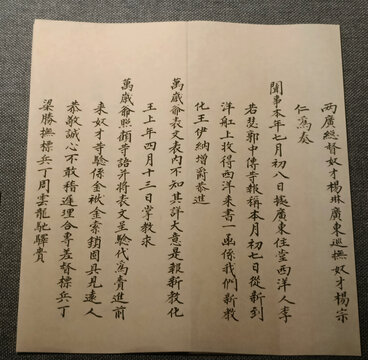 兩廣總督奴才楊琳廣東巡撫奴才楊宗
仁爲奏
聞事本年七月初八日據廣東住堂西洋人李
若瑟郭中傳等報稱本月初七日從新到
洋舡上收得西洋來書一函係我們新教
化王伊納增爵恭進
萬歲爺表文表內不知其詳大意是報新教化
王上年四月十三日掌教求
萬歲爺照顧等語并將表文呈驗代爲賫進前
來奴才等驗係金袱金索鎖固具見遠人
恭敬誠心不敢稽遲理合專差督標兵丁
梁勝撫標兵丁周雲龍馳驛賫